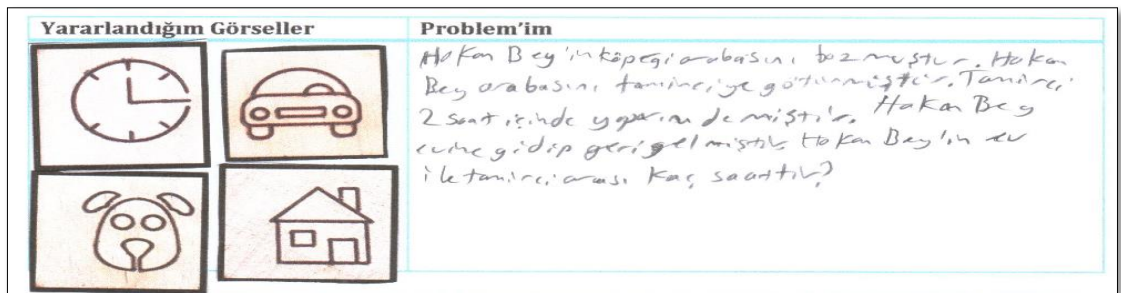 Yararlandığım Görseller
Problem'im
Hakan Bey'in köpeği arabasını bozmuştur. Hakan
Bey arabasını tamirciye götürmüştür. Tamirci
2 saat içinde yaparım demiştir. Hakan Bey
evine gidip geri gelmiştir. Hakan Bey'in ev
ile tamirci arası kaç saattir?